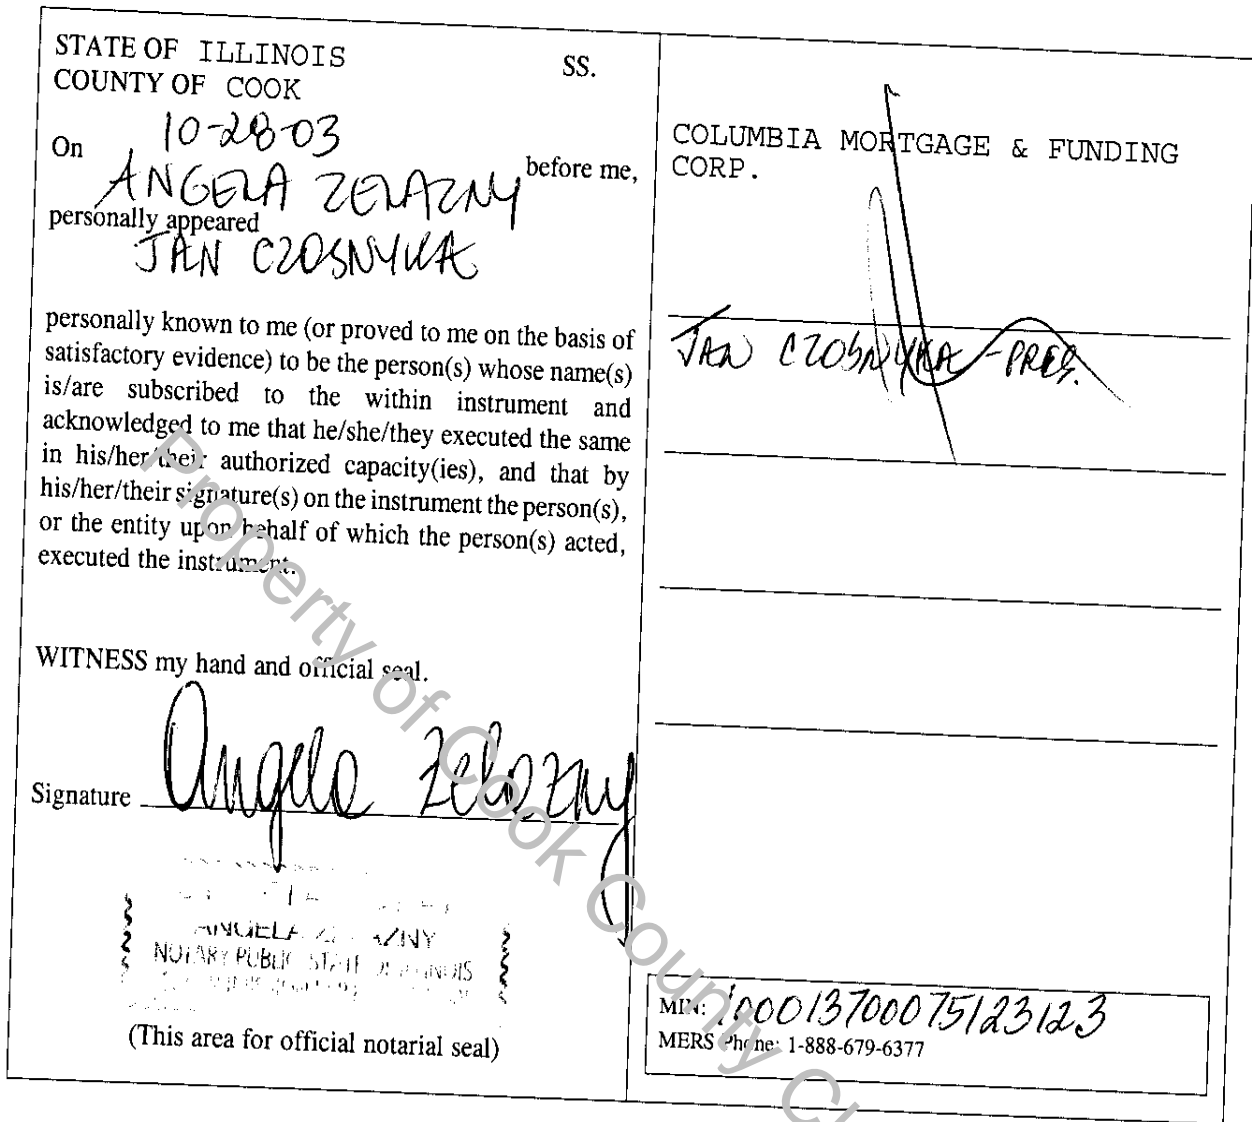 STATE OF ILLINOIS SS.
COUNTY OF COOK
On 10-28-03
ANGELA ZELAZNY before me,
personally appeared
JAN CZOSNYKA
personally known to me (or proved to me on the basis of
satisfactory evidence) to be the person(s) whose name(s)
is/are subscribed to the within instrument and
acknowledged to me that he/she/they executed the same
in his/her/their authorized capacity(ies), and that by
his/her/their signature(s) on the instrument the person(s),
or the entity upon behalf of which the person(s) acted,
executed the instrument.
WITNESS my hand and official seal.
Signature Angela Zelazny
ANGELA ZELAZNY
NOTARY PUBLIC STATE OF ILLINOIS
(This area for official notarial seal)
COLUMBIA MORTGAGE & FUNDING
CORP.
JAN CZOSNYKA - PRES.
MIN: 100013700075123123
MERS Phone: 1-888-679-6377
Property of Cook County